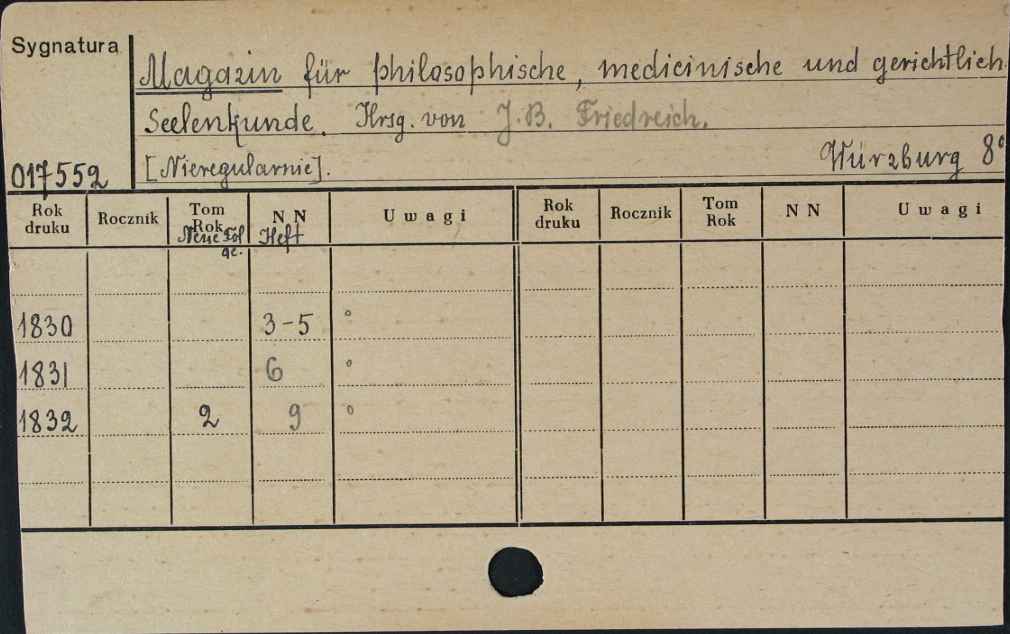 Sygnatura
Magazin für philosophische, medicinische und gerichtlich.
Seelenkunde. Hrsg. von J. B. Friedreich.
[Nieregularnie]. Würzburg 8°
017552
Rok druku Rocznik Tom Rok Neue Folge. N N Heft Uwagi Rok druku Rocznik Tom Rok N N Uwagi
1830 3-5 °
1831 6 °
1832 2 9 °